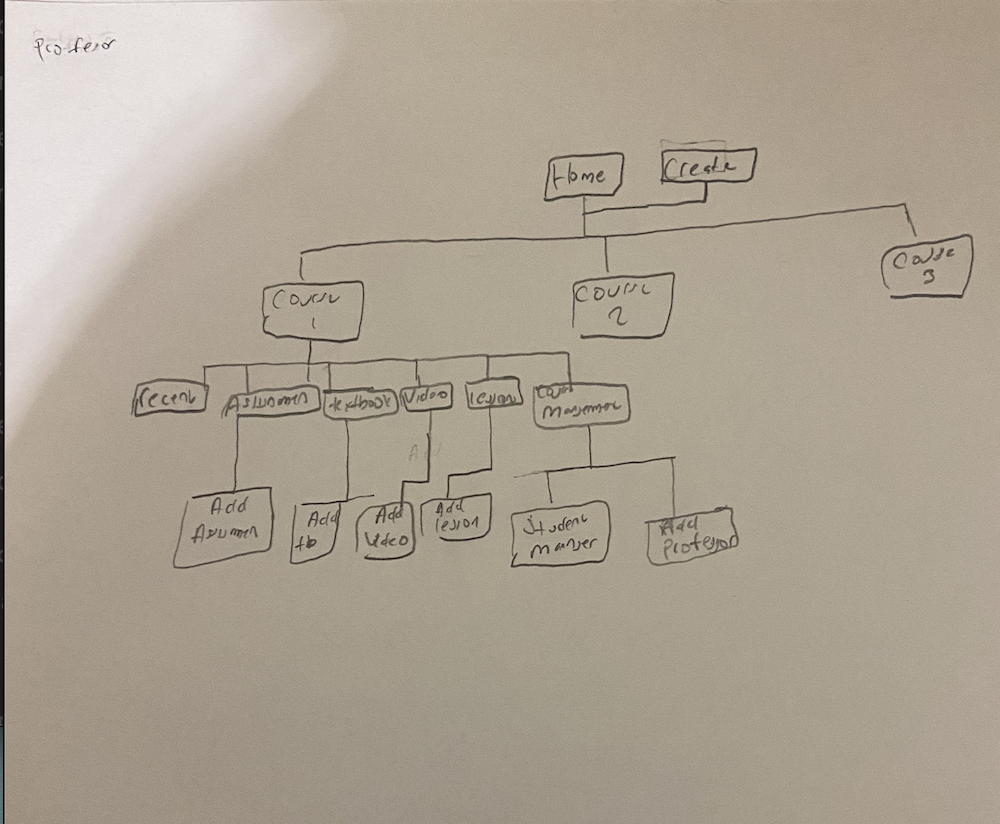 Profesor
Home
Create
Course
1
Course
2
Course
3
recent
Assignment
textbook
Video
lesson
Management
Add
Assignment
Add
tb
Add
Video
Add
lesson
Student
Manager
Add
Professor